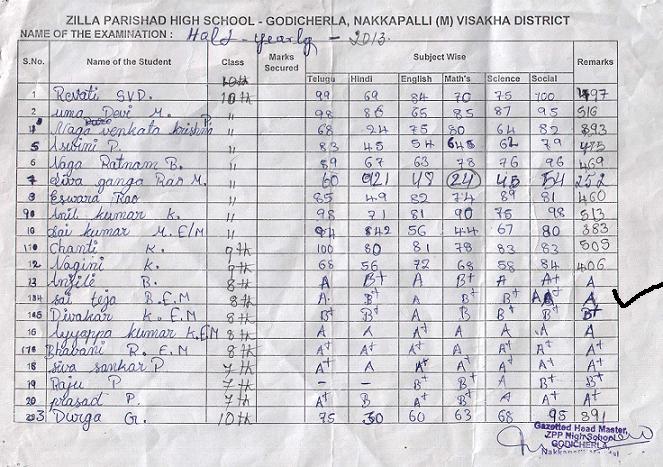 ZILLA PARISHAD HIGH SCHOOL - GODICHERLA, NAKKAPALLI (M) VISAKHA DISTRICT
NAME OF THE EXAMINATION : Half-yearly - 2013.
S.No. Name of the Student Class Marks Secured Subject Wise Remarks
Telugu Hindi English Math's Science Social
10th
1 Revati S.V.D. 10th 99 69 84 70 75 100 497
2 uma Devi M. " 98 86 65 85 87 95 516
Naga venkata krishna P. " 68 24 75 80 64 82 393
5 Asvini P. " 83 45 54 62 79
6 Naga Ratnam B. " 89 67 63 78 76 96 469
7 Siva ganga Rao M. " 60 48 24 45 54 252
8 Eswara Rao " 85 49 82 74 89 81 460
Anil kumar K. " 98 71 81 90 75 98 513
10 Sai kumar M. E/M " 94 56 44 67 80 383
Chanti K. 9th 100 80 81 78 83 83 505
12 Nagini K. 9th 68 56 72 68 58 84 406
13 Anjili B. 8th A B+ A A A A+ A
Sai teja B.E.M 8th A B+ A B+ B+ A A
Divakar K. E.M 8th B+ B+ A B B+ B+
16 Ayyappa kumar K.E.M 8th A A A+ A A A A
Bhavani R. E.M 8th A+ A+ A+ A A+ A+ A+
18 Siva sankar P 7th A+ A A+ A+ A+ A+ A+
19 Raju P 7th - - B+ B+ A B+ B+
20 prasad P. 7th A+ B A A A A+ A+
Durga G. 10th 75 30 60 63 68 95 391
Gazetted Head Master,
ZPP High School
GODICHERLA,
Nakkapalli Mandal